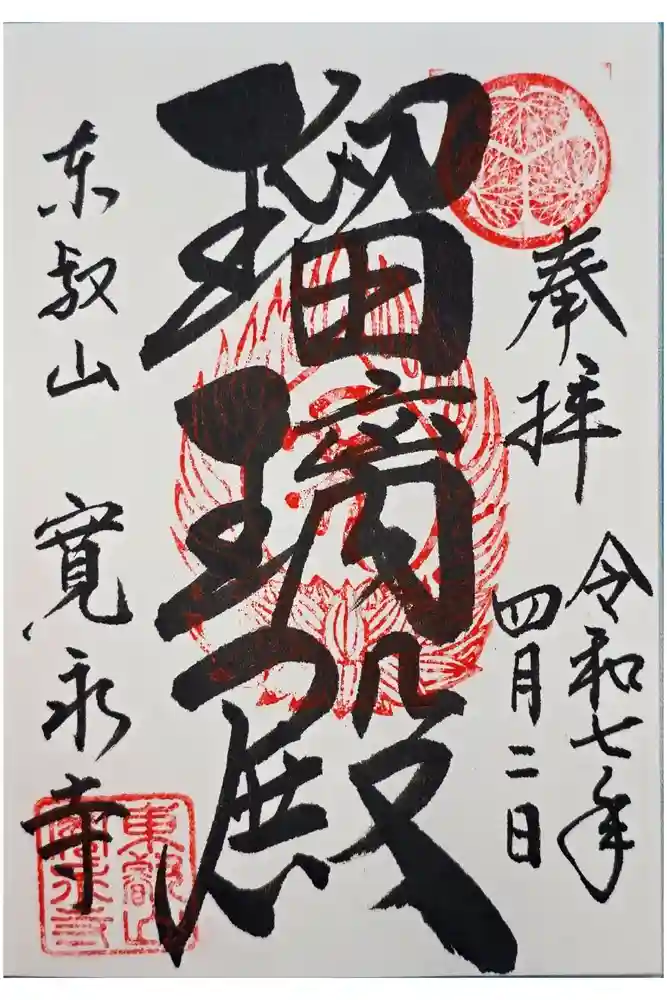 奉拝
令和七年
四月二日
瑠璃殿
東叡山 寛永寺
東叡山
寛永寺